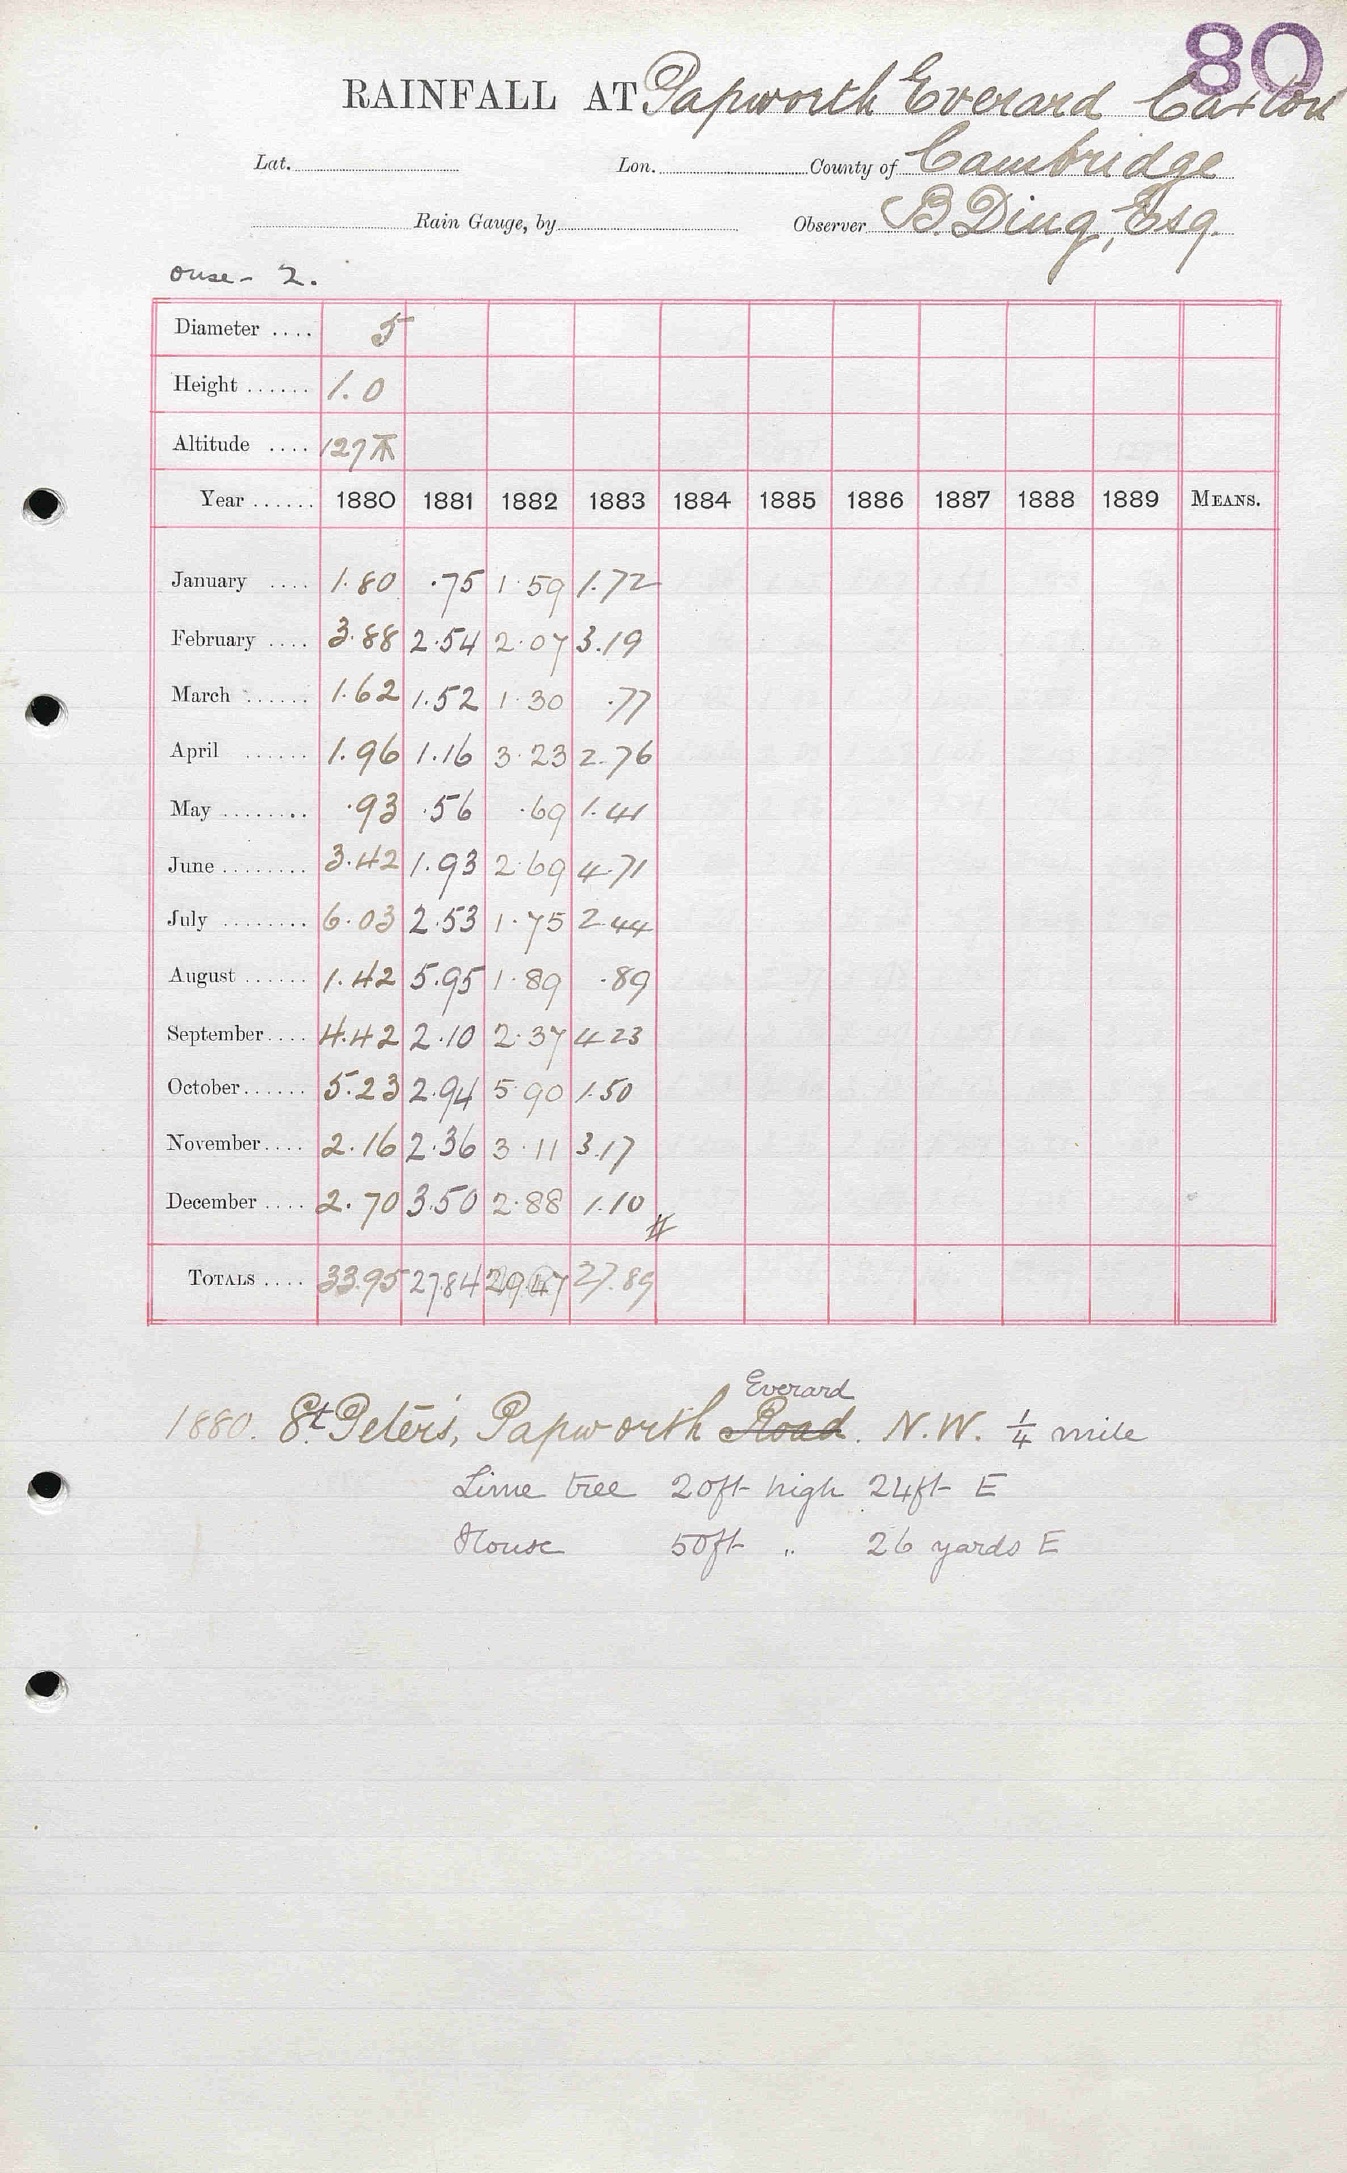 80
RAINFALL AT Papworth Everard Caxton
Lat. Lon. County of Cambridge
Rain Gauge, by Observer B. Ding, Esq.
Ouse - 2.
Diameter .... 5
Height ...... 1.0
Altitude .... 127
Year ...... 1880 1881 1882 1883 1884 1885 1886 1887 1888 1889 MEANS.
January .... 1.80 .75 1.59 1.72
February .... 3.88 2.54 2.07 3.19
March ...... 1.62 1.52 1.30 .77
April ...... 1.96 1.16 3.23 2.76
May ........ .93 .56 .69 1.41
June ........ 3.42 1.93 2.69 4.71
July ........ 6.03 2.53 1.75 2.44
August ...... 1.42 5.95 1.89 .89
September .... 4.42 2.10 2.37 4.23
October ...... 5.23 2.94 5.90 1.50
November .... 2.16 2.36 3.11 3.17
December .... 2.70 3.50 2.88 1.10
TOTALS .... 33.95 27.84 29.47 27.89
Everard
1880. St. Peter's, Papworth Road. N.W. 1/4 mile
Lime tree 20ft high 24ft E
House 50ft " 26 yards E